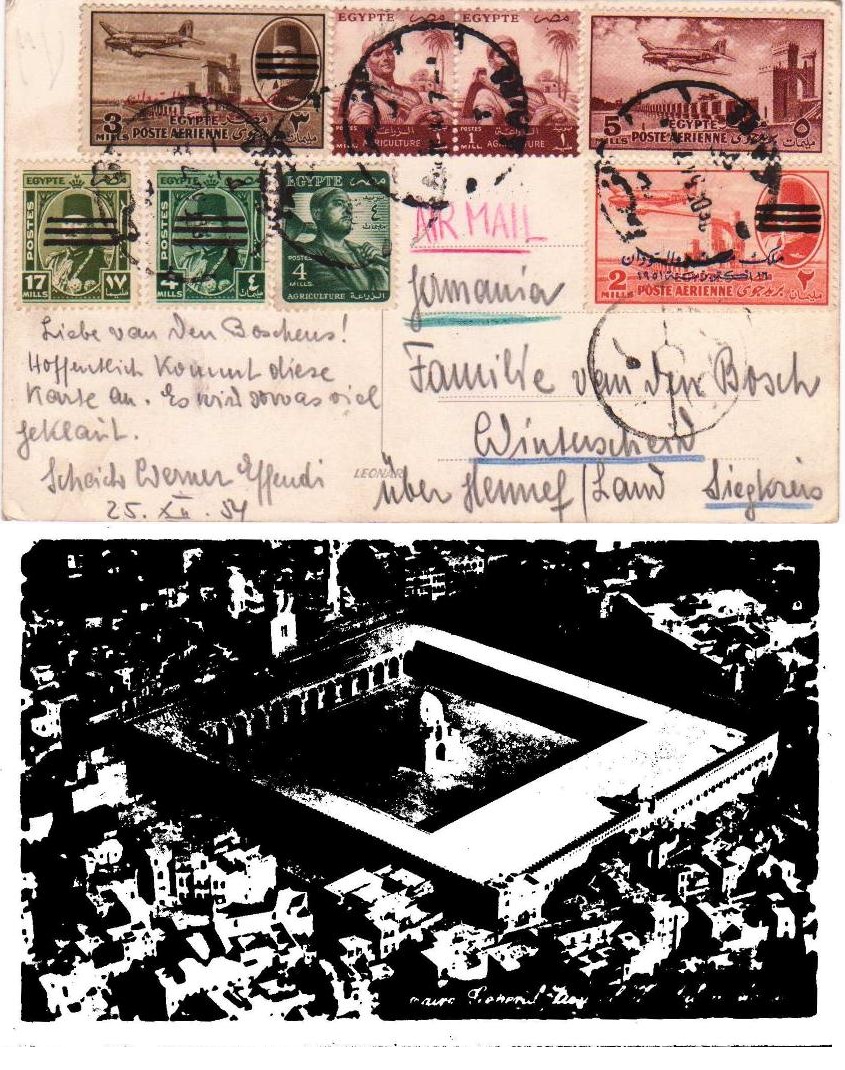 EGYPTE مصر
EGYPTE مصر
EGYPTE
3 MILLS POSTE AERIENNE بريد جوى ٣ مليمات
POSTES 1 MILL AGRICULTURE الزراعة
POSTES 1 MILL AGRICULTURE الزراعة ١
EGYPTE
5 MILLS POSTE AERIENNE بريد جوى ٥ مليمات
EGYPTE
POSTES
17 MILLS ١٧
EGYPTE
POSTES
4 MILLS ٤ مليمات
EGYPTE مصر
٤ مليمات
POSTES
4 MILLS
AGRICULTURE الزراعة
ملك مصر والسودان
١٦ أكتوبر سنة ١٩٥١
2 MILLS POSTE AERIENNE بريد جوى ٢ مليمات
AIR MAIL
Germania
Liebe van den Boschens!
Hoffentlich kommt diese
Karte an. Es wird sowas viel
geklaut.
Scheich Werner Effendi
25. XII. 54
LEONAR
Familie van den Bosch
Winterscheid
über Hennef (Land Siegkreis
Cairo General